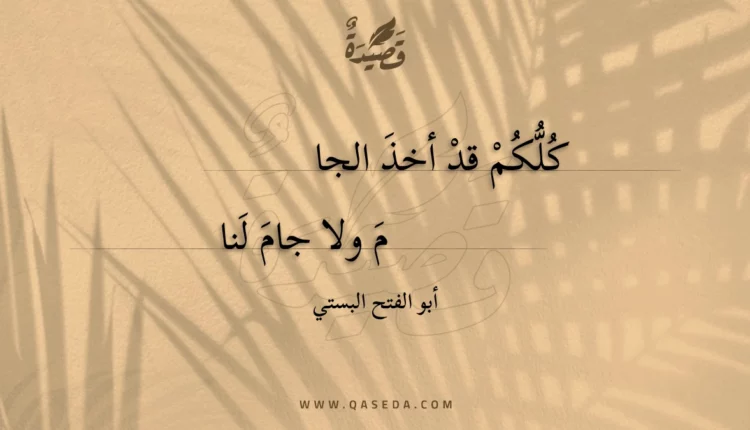 قَصِيْدَةٌ
كُلُّكُمْ قدْ أخذَ الجا
مَ ولا جامَ لَنا
أبو الفتح البستي
WWW.QASEDA.COM